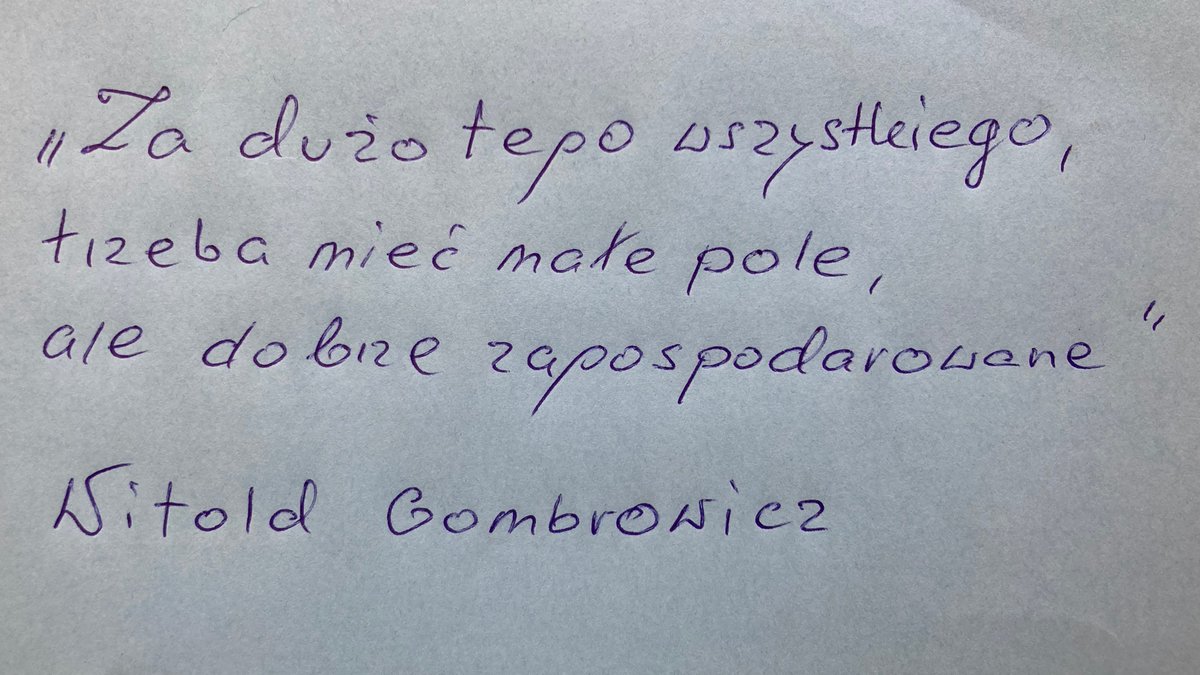 „Za dużo tego wszystkiego,
trzeba mieć małe pole,
ale dobrze zagospodarowane"
Witold Gombrowicz